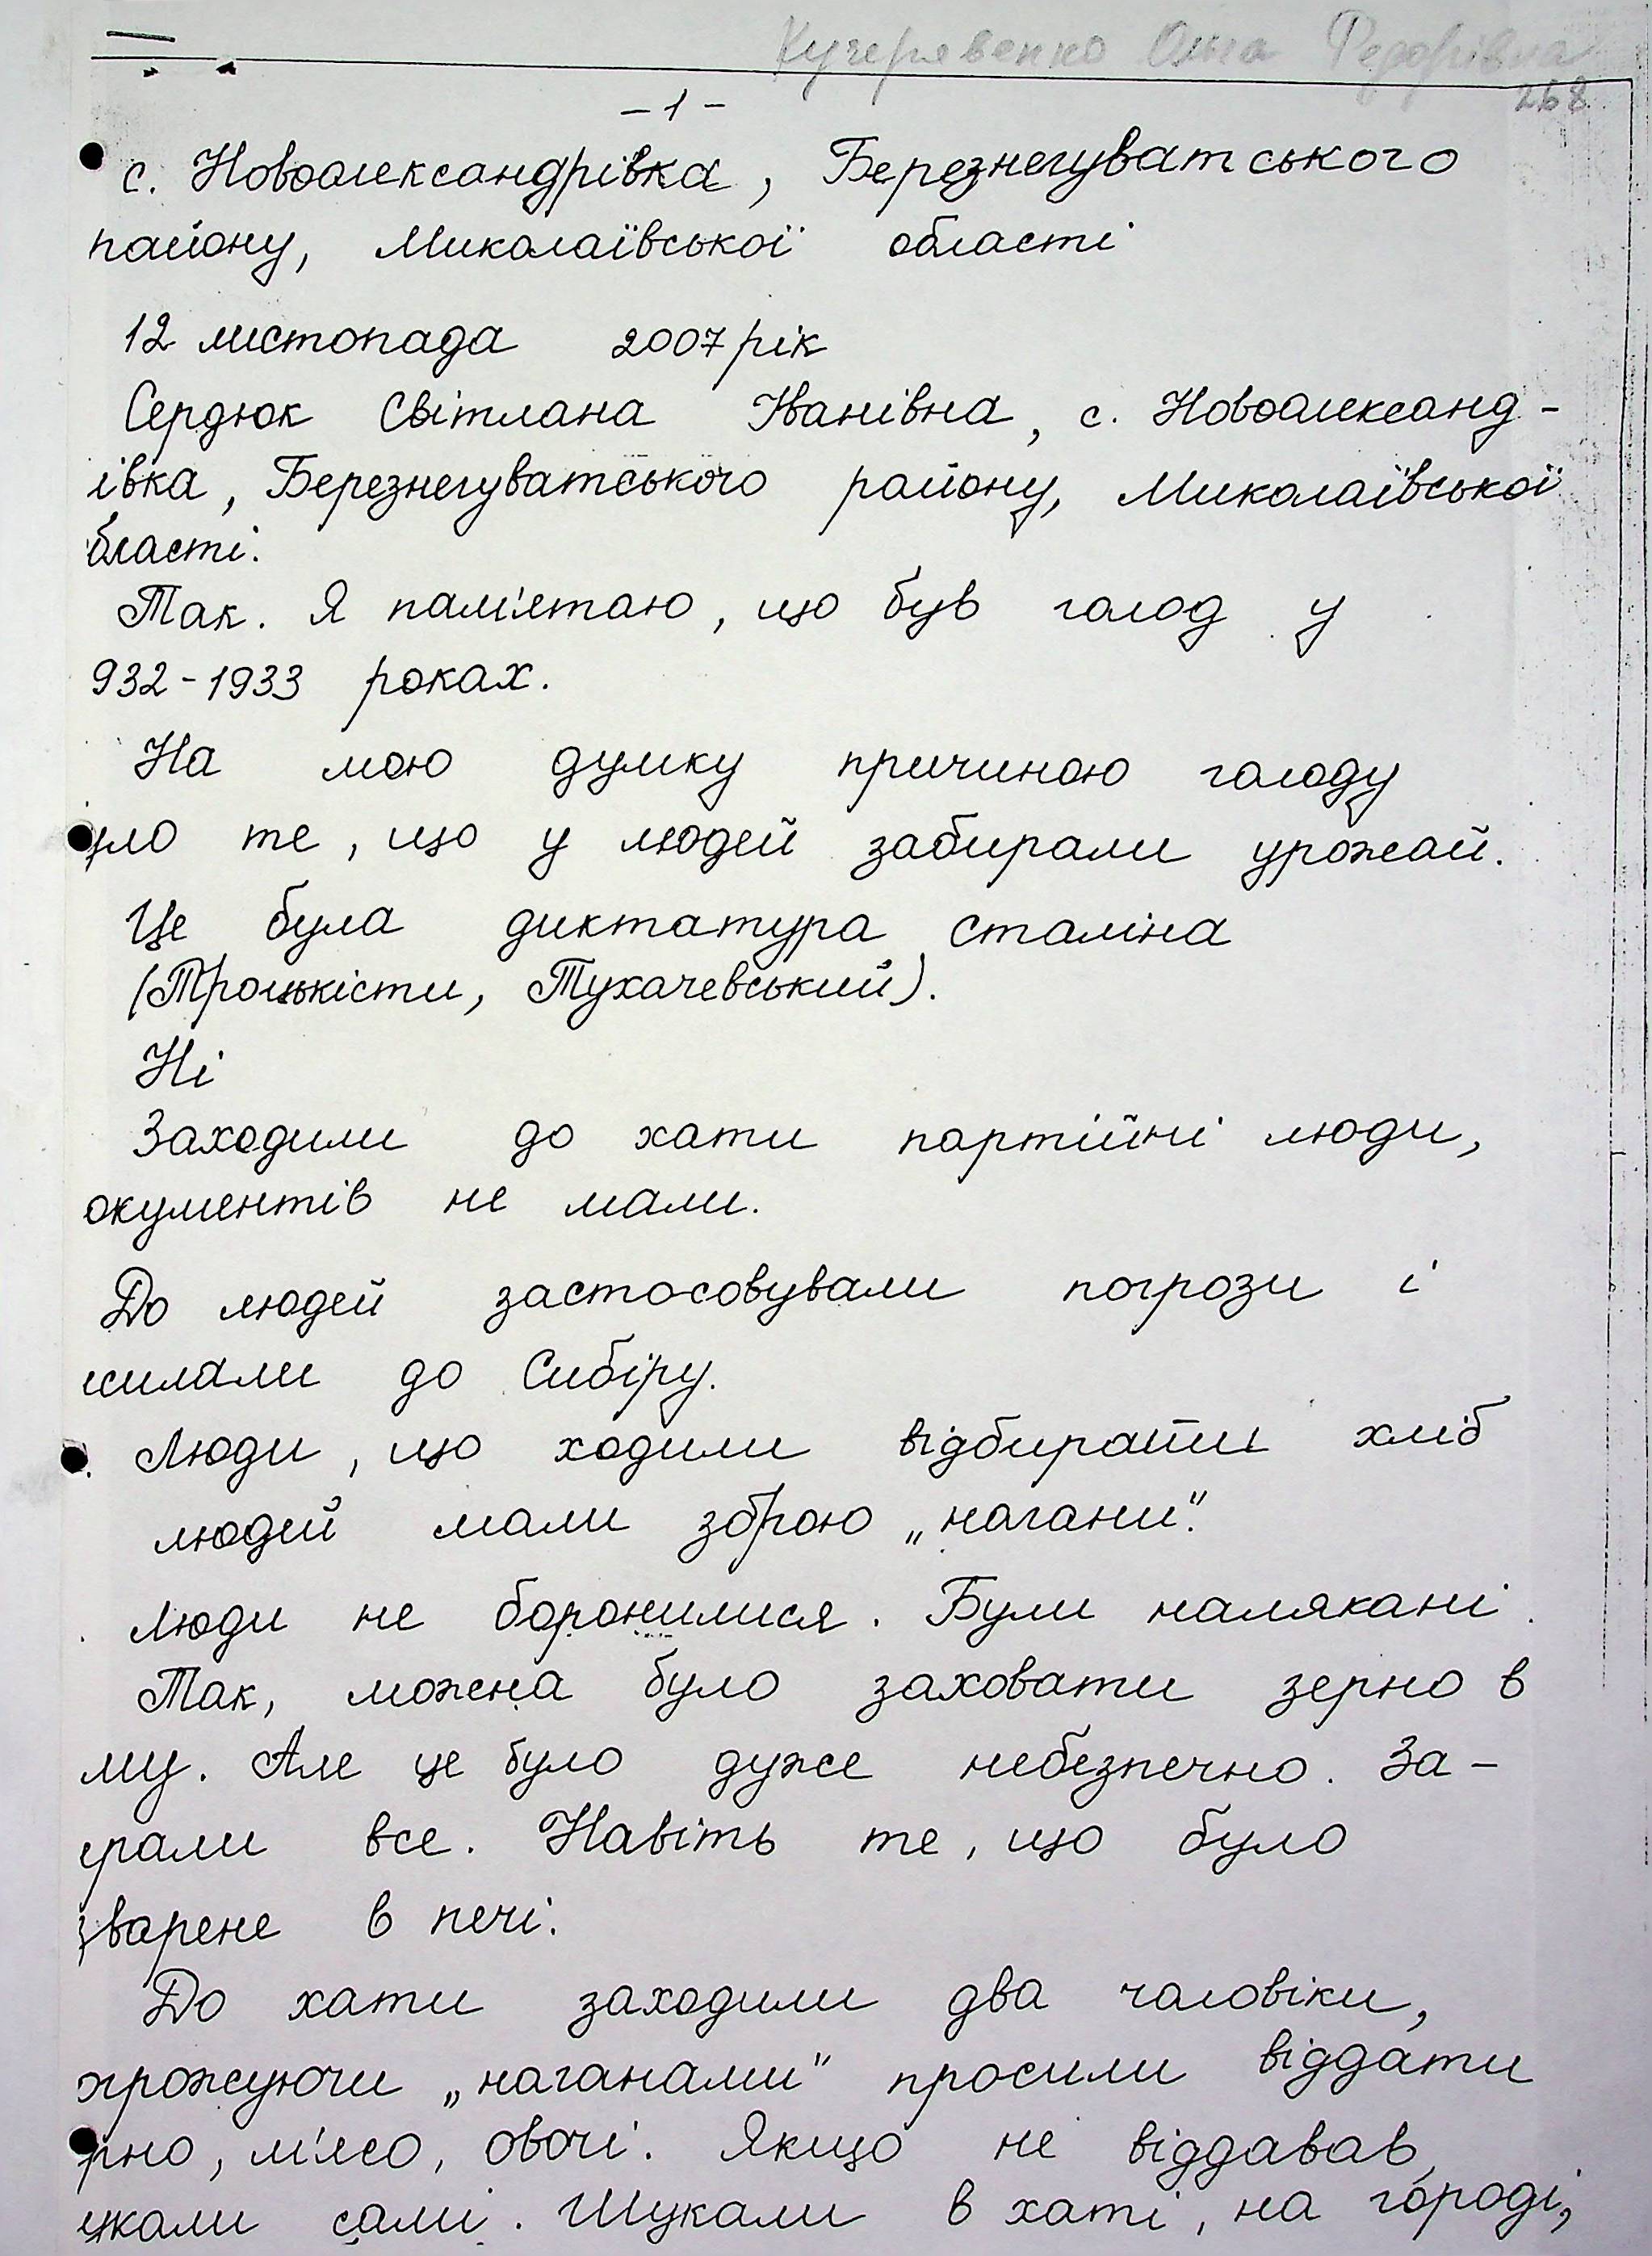 Кучерявенко Ольга Федорівна
268
- 1 -
с. Новоалександрівка, Березнегуватського
району, Миколаївської області
12 листопада 2007 рік
Сердюк Світлана Іванівна, с. Новоалександ-
івка, Березнегуватського району, Миколаївської
бласті.
Так. Я пам'ятаю, що був голод у
932-1933 роках.
На мою думку причиною голоду
уло те, що у людей забирали урожай.
Це була диктатура сталіна
(Троцькісти, Тухачевський).
Ні
Заходили до хати партійні люди,
окументів не мали.
До людей застосовували погрози і
силали до Сибіру.
Люди, що ходили відбирати хліб
людей мали зброю „нагани".
Люди не боронилися. Були налякані.
Так, можна було заховати зерно в
му. Але це було дуже небезпечно. За-
рали все. Навіть те, що було
зварене в печі.
До хати заходили два чоловіки,
грожуючи „наганами" просили віддати
рно, м'ясо, овочі. Якщо не віддавав,
укали самі. Шукали в хаті, на городі,